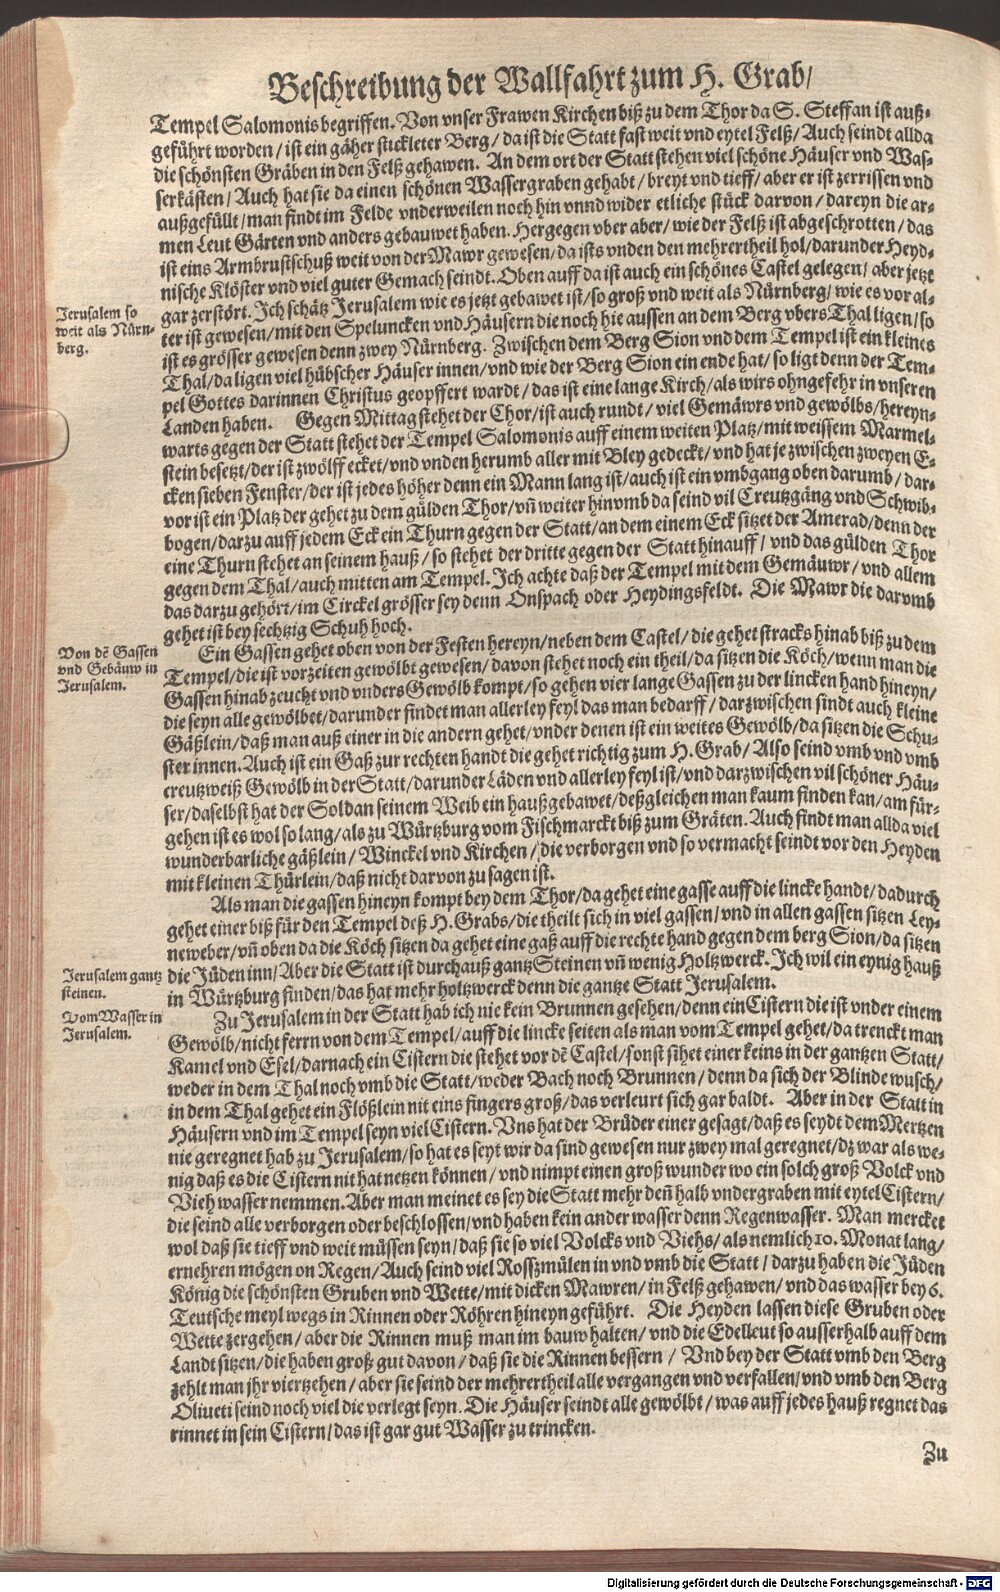 Beschreibung der Wallfahrt zum H. Grab/
Tempel Salomonis begriffen. Von vnser Frawen Kirchen biß zu dem Thor da S. Steffan ist auß-
geführt worden/ ist ein gäher stickleter Berg/ da ist die Statt fast weit vnd eytel Felß/ Auch seindt allda
die schönsten Gräben in den Felß gehawen. An dem ort der Statt stehen viel schöne Häuser vnd Was-
serkästen/ Auch hat sie da einen schönen Wassergraben gehabt/ breyt vnd tieff/ aber er ist zerrissen vnd
außgefüllt/ man findt im Felde vnderweilen noch hin vnnd wider etliche stück darvon/ dareyn die ar-
men Leut Gärten vnd anders gebauwet haben. Hergegen vber aber/ wie der Felß ist abgeschrotten/ das
ist eins Armbrustschuß weit von der Mawr gewesen/ da ists vnden den mehrertheil hol/ darunder Heyd-
nische Klöster vnd viel guter Gemach seindt. Oben auff da ist auch ein schönes Castel gelegen/ aber jetzt
gar zerstört. Ich schätz Jerusalem wie es jetzt gebawet ist/ so groß vnd weit als Nürnberg/ wie es vor al-
ter ist gewesen/ mit den Speluncken vnd Häusern die noch hie aussen an dem Berg vbers Thal ligen/ so
ist es grösser gewesen denn zwey Nürnberg. Zwischen dem Berg Sion vnd dem Tempel ist ein kleines
Thal/ da ligen viel hübscher Häuser innen/ vnd wie der Berg Sion ein ende hat/ so ligt denn der Tem-
pel Gottes darinnen Christus geopffert wardt/ das ist eine lange Kirch/ als wirs ohngefehr in vnseren
Landen haben. Gegen Mittag stehet der Chor/ ist auch rundt/ viel Gemäwrs vnd gewölbs/ hereyn-
warts gegen der Statt stehet der Tempel Salomonis auff einem weiten Platz/ mit weissem Marmel-
stein besetzt/ der ist zwölff ecket/ vnd vnden herumb aller mit Bley gedeckt/ vnd hat je zwischen zweyen E-
cken sieben Fenster/ der ist jedes höher denn ein Mann lang ist/ auch ist ein vmbgang oben darumb/ dar-
vor ist ein Platz der gehet zu dem gülden Thor/ vñ weiter hinumb da seind vil Creutzgäng vnd Schwib-
bogen/ darzu auff jedem Eck ein Thurn gegen der Statt/ an dem einem Eck sitzet der Amerad/ denn der
eine Thurn stehet an seinem hauß/ so stehet der dritte gegen der Statt hinauff/ vnd das gülden Thor
gegen dem Thal/ auch mitten am Tempel. Ich achte daß der Tempel mit dem Gemäuwr/ vnd allem
das darzu gehört/ im Circkel grösser sey denn Onspach oder Heydingsfeldt. Die Mawr die darumb
gehet ist bey sechtzig Schuh hoch.
Jerusalem so
weit als Nürn-
berg.
Ein Gassen gehet oben von der Festen hereyn/ neben dem Castel/ die gehet stracks hinab biß zu dem
Tempel/ die ist vorzeiten gewölbt gewesen/ davon stehet noch ein theil/ da sitzen die Köch/ wenn man die
Gassen hinab zeucht vnd vnders Gewölb kompt/ so gehen vier lange Gassen zu der lincken hand hineyn/
die seyn alle gewölbet/ darunder findet man allerley feyl das man bedarff/ darzwischen sindt auch kleine
Gäßlein/ daß man auß einer in die andern gehet/ vnder denen ist ein weites Gewölb/ da sitzen die Schu-
ster innen. Auch ist ein Gaß zur rechten handt die gehet richtig zum H. Grab/ Also seind vmb vnd vmb
creutzweiß Gewölb in der Statt/ darunder Läden vnd allerley feyl ist/ vnd darzwischen vil schöner Häu-
ser/ daselbst hat der Soldan seinem Weib ein hauß gebawet/ deßgleichen man kaum finden kan/ am für-
gehen ist es wol so lang/ als zu Würtzburg vom Fischmarckt biß zum Gräten. Auch findt man allda viel
wunderbarliche gäßlein/ Winckel vnd Kirchen/ die verborgen vnd so vermacht seindt vor den Heyden
mit kleinen Thürlein/ daß nicht darvon zu sagen ist.
Von dẽ Gassen
vnd Gebäuw in
Jerusalem.
Als man die gassen hineyn kompt bey dem Thor/ da gehet eine gasse auff die lincke handt/ dadurch
gehet einer biß für den Tempel deß H. Grabs/ die theilt sich in viel gassen/ vnd in allen gassen sitzen Ley-
neweber/ vñ oben da die Köch sitzen da gehet eine gaß auff die rechte hand gegen dem berg Sion/ da sitzen
die Jüden inn/ Aber die Statt ist durchauß gantz Steinen vñ wenig Holtzwerck. Ich wil ein eynig hauß
in Würtzburg finden/ das hat mehr holtzwerck denn die gantze Statt Jerusalem.
Jerusalem gantz
steinen.
Zu Jerusalem in der Statt hab ich nie kein Brunnen gesehen/ denn ein Cistern die ist vnder einem
Gewölb/ nicht ferrn von dem Tempel/ auff die lincke seiten als man vom Tempel gehet/ da trenckt man
Kamel vnd Esel/ darnach ein Cistern die stehet vor dẽ Castel/ sonst sihet einer keins in der gantzen Statt/
weder in dem Thal noch vmb die Statt/ weder Bach noch Brunnen/ denn da sich der Blinde wusch/
in dem Thal gehet ein Flößlein nit eins fingers groß/ das verleurt sich gar baldt. Aber in der Statt in
Häusern vnd im Tempel seyn viel Cistern. Vns hat der Brüder einer gesagt/ daß es seydt dem Mertzen
nie geregnet hab zu Jerusalem/ so hat es seyt wir da sind gewesen nur zwey mal geregnet/ dz war als we-
nig daß es die Cistern nit hat netzen können/ vnd nimpt einen groß wunder wo ein solch groß Volck vnd
Vieh wasser nemmen. Aber man meinet es sey die Statt mehr deñ halb vndergraben mit eytel Cistern/
die seind alle verborgen oder beschlossen/ vnd haben kein ander wasser denn Regenwasser. Man mercket
wol daß sie tieff vnd weit müssen seyn/ daß sie so viel Volcks vnd Viehs/ als nemlich 10. Monat lang/
ernehren mögen on Regen/ Auch seind viel Rosszmülen in vnd vmb die Statt/ darzu haben die Jüden
König die schönsten Gruben vnd Wette/ mit dicken Mawren/ in Felß gehawen/ vnd das wasser bey 6.
Teutsche meyl wegs in Rinnen oder Röhren hineyn geführt. Die Heyden lassen diese Gruben oder
Wette zergehen/ aber die Rinnen muß man im bauw halten/ vnd die Edelleut so ausserhalb auff dem
Landt sitzen/ die haben groß gut davon/ daß sie die Rinnen bessern/ Vnd bey der Statt vmb den Berg
zehlt man jhr viertzehen/ aber sie seind der mehrertheil alle vergangen vnd verfallen/ vnd vmb den Berg
Oliueti seind noch viel die verlegt seyn. Die Häuser seindt alle gewölbt/ was auff jedes hauß regnet das
rinnet in sein Cistern/ das ist gar gut Wasser zu trincken.
Vom Wasser in
Jerusalem.
Zu
Digitalisierung gefördert durch die Deutsche Forschungsgemeinschaft - DFG